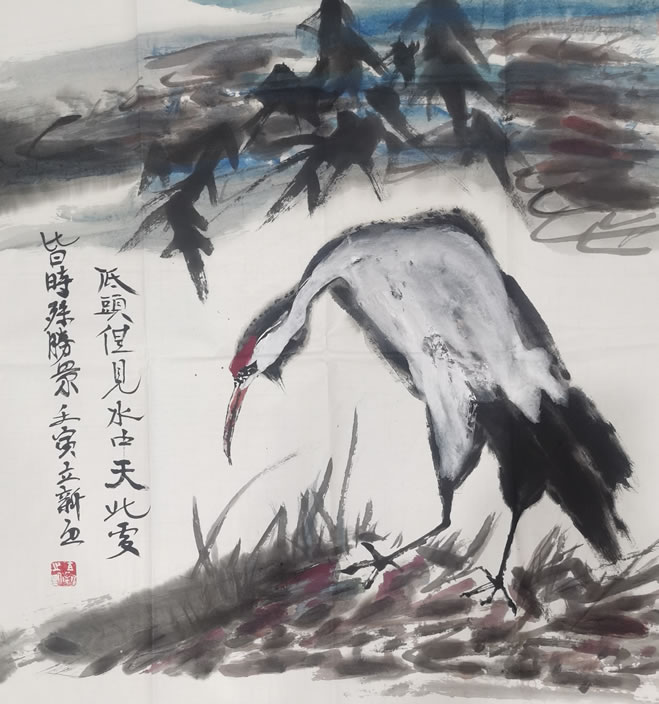 低頭但見水中天此處
皆時殊勝景壬寅立新画